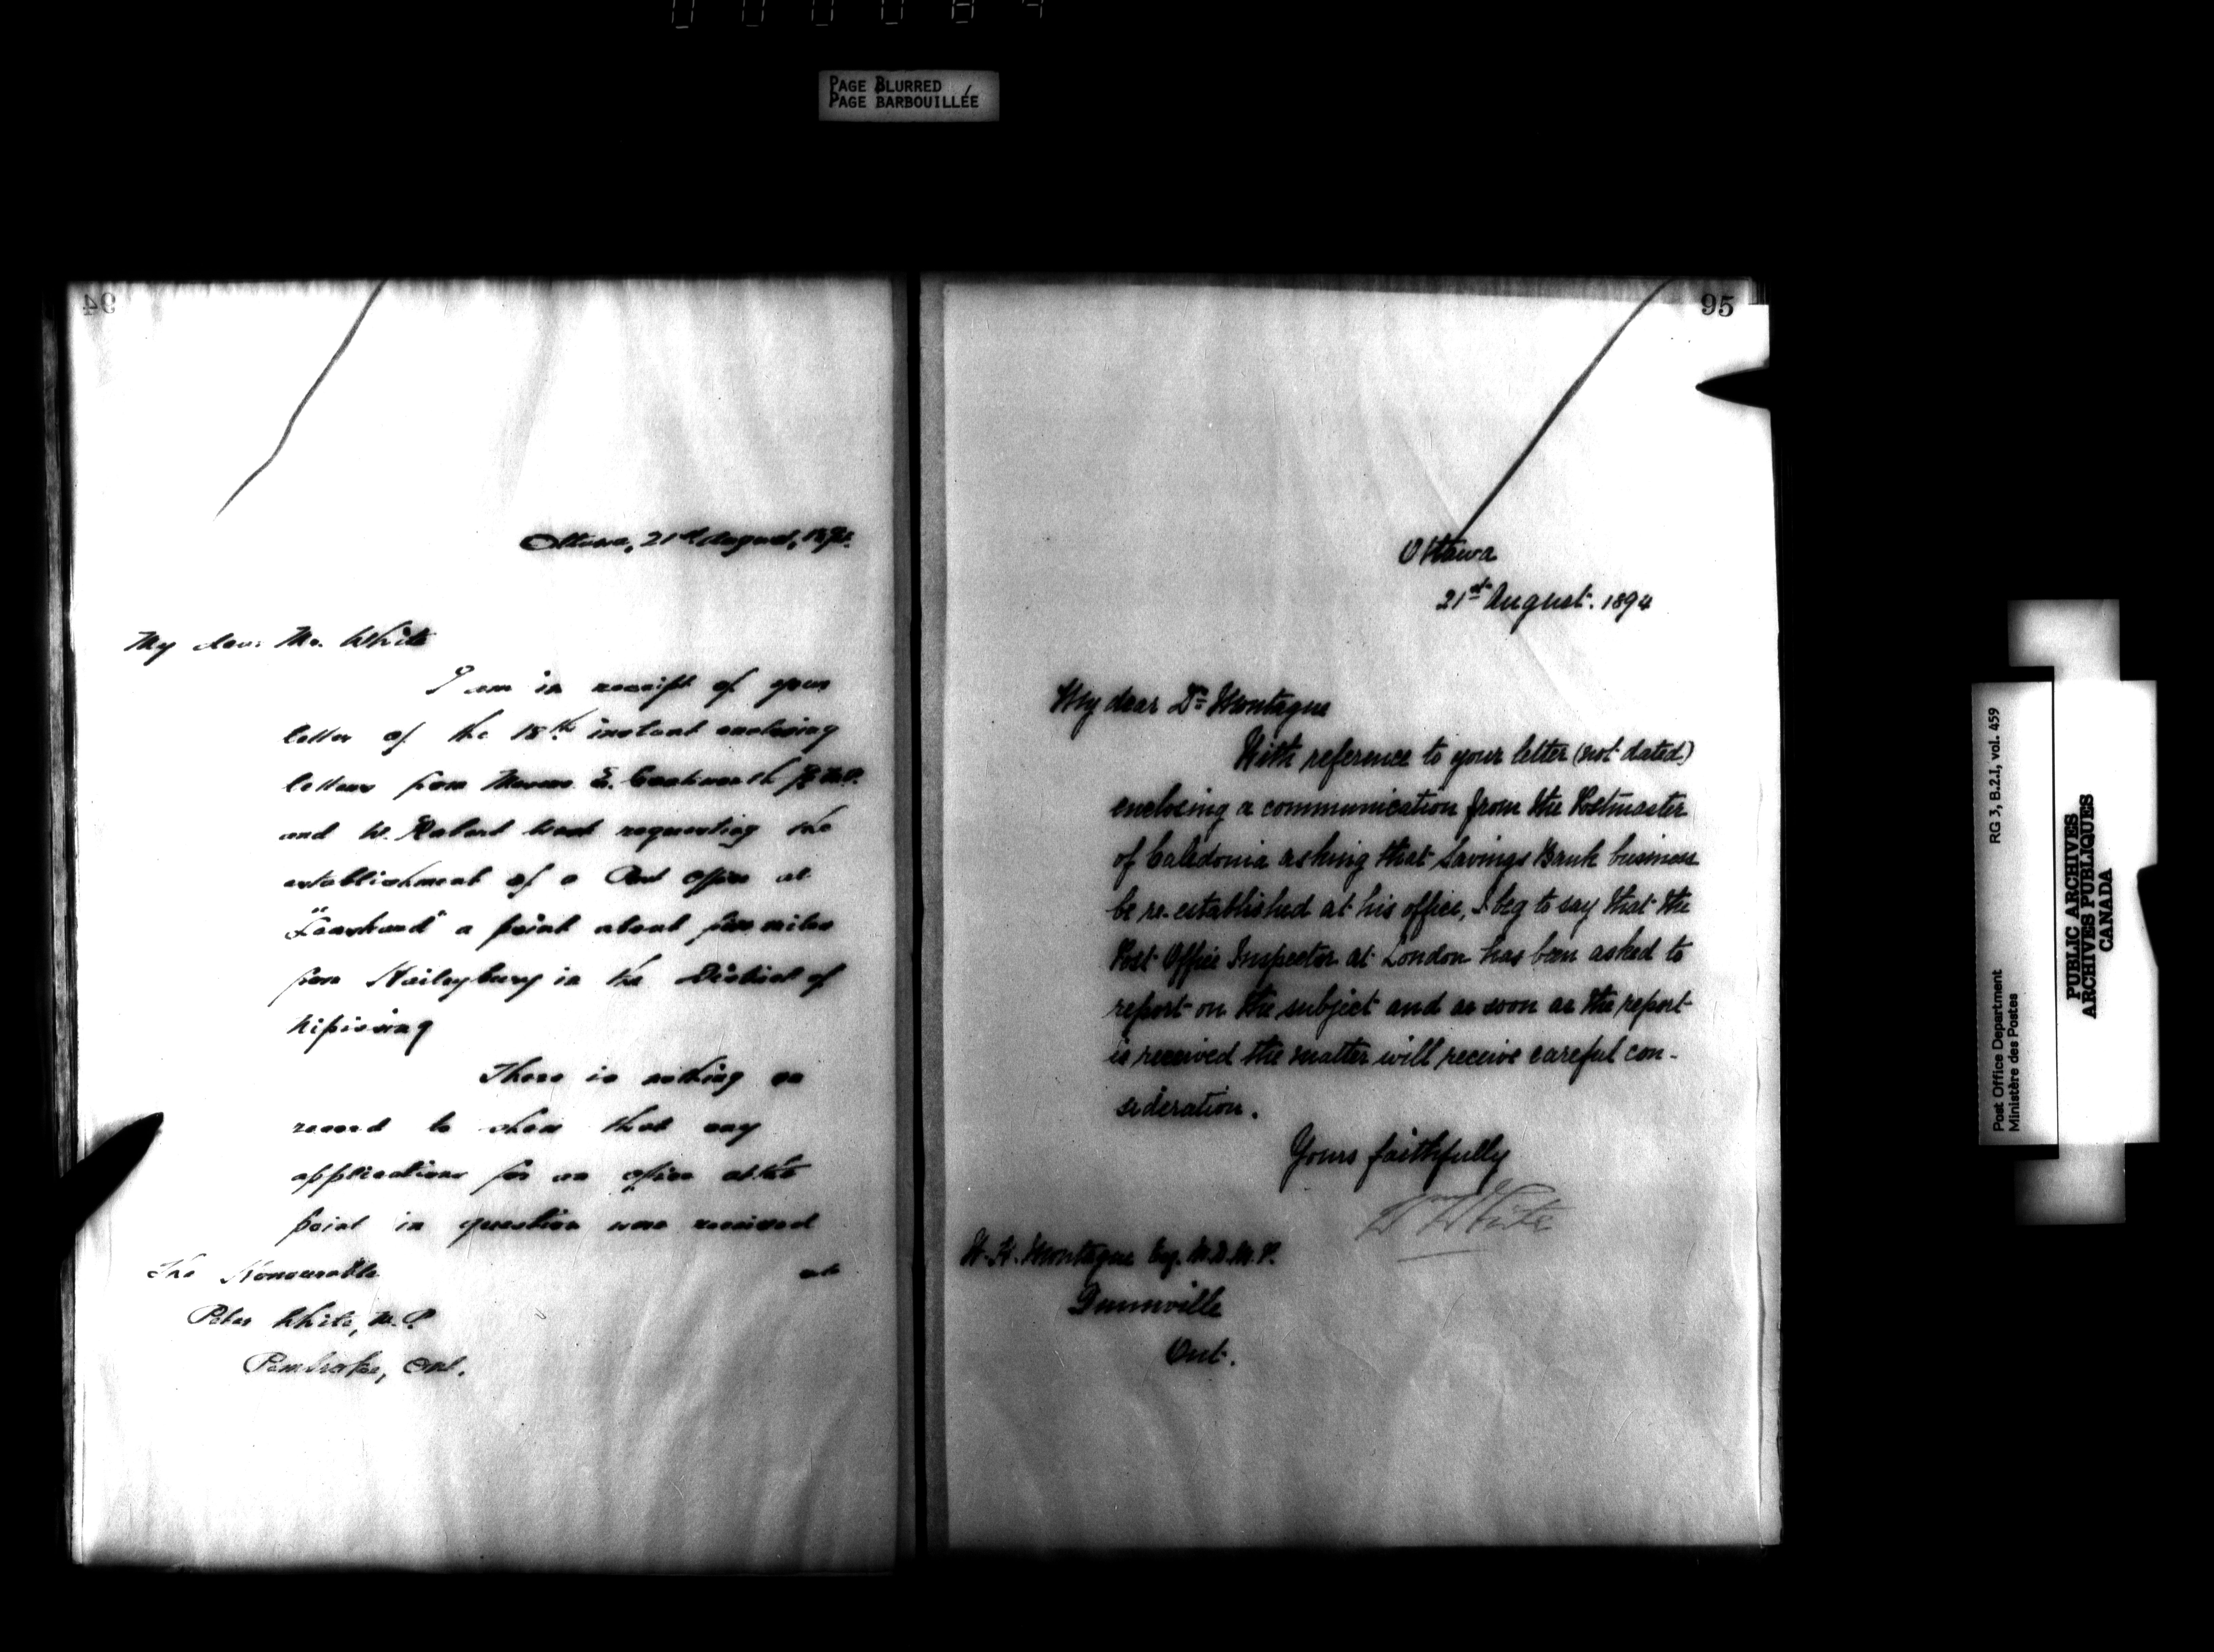 PAGE BLURRED
PAGE BARBOUILLÉE
94
Ottawa, 21st August, 1894.
My dear Mr. White
I am in receipt of your
letter of the 18th instant enclosing
letters from Messrs. E.
and requesting the
establishment of a Post Office at
a point about five miles
from Haileybury in the District of
Nipissing
There is nothing on
record to show that any
applications for an office at the
point in question were received
The Honourable
Peter White, M.P.
Pembroke, Ont.
95
Ottawa
21st August. 1894
My dear Dr Montague
With reference to your letter (not dated)
enclosing a communication from the Postmaster
of Caledonia asking that Savings Bank business
be re-established at his office, I beg to say that the
Post Office Inspector at London has been asked to
report on the subject and as soon as the report
is received the matter will receive careful con-
sideration.
Yours faithfully
Wm White
W. H. Montague Esq. M.D. M.P.
Dunnville
Ont.
Post Office Department RG 3, B.2.1, vol. 459
Ministère des Postes
PUBLIC ARCHIVES
ARCHIVES PUBLIQUES
CANADA